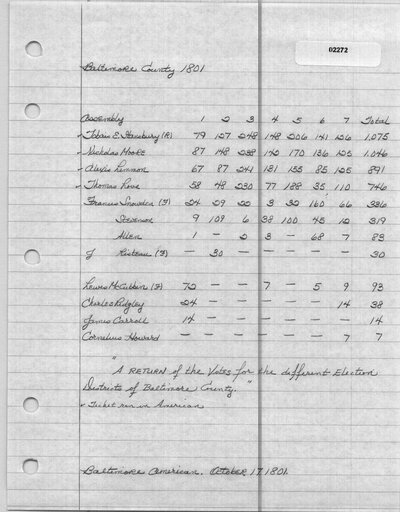 02272
Baltimore County 1801
Assembly 1 2 3 4 5 6 7 Total
✓ Tobias E Stansbury (R) 79 127 248 148 206 141 126 1,075
✓ Nicholas Moore 87 148 238 142 170 136 125 1,046
✓ Alexis Lemmon 67 87 241 131 155 85 125 891
✓ Thomas Love 58 48 230 77 188 35 110 746
Francis Snowden (F) 24 29 22 3 32 160 66 336
Stevenson 9 109 6 38 100 45 12 319
Allen 1 — 2 3 — 68 7 83
J Risteau (F) — 30 — — — — — 30
Lewis McCubbin (F) 72 — — 7 — 5 9 93
Charles Ridgley 24 — — — — — 14 38
James Carroll 14 — — — — — — 14
Cornelius Howard — — — — — — 7 7
"A RETURN of the Votes for the different Election
Districts of Baltimore County."
✓ Ticket run in American
Baltimore American. October 17 1801